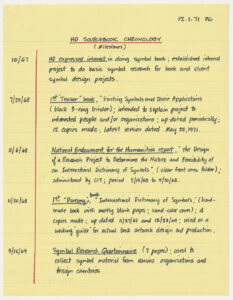 12.1.71 PG
HD SOURCEBOOK CHRONOLOGY
(Milestones)
10/67 HD expressed interest in doing symbol book; established internal
project to do basic symbol research for book and client
symbol design projects.
7/20/68 1st "Teaser" book, "Existing Symbols and Their Applications
(black 3-ring binder); intended to explain project to
interested people and/or organizations; up dated periodically;
12 copies made, latest version dated May 20, 1971.
11/6/68 National Endowment for the Humanities report, "The Design
of a Research Project to Determine the Nature and Feasibility of
an International Dictionary of Symbols", (clear front cover folder);
administered by CIT; period
1st "Dummy" book, "International Dictionary of Symbols," (hand-
made book with mostly blank pages; sand color cover); 2
copies made; up dated and used as a
working guide for actual book artwork design and production.
Symbol Research Questionnaire (7 pages); used to
collect symbol material from various organizations and
foreign countries